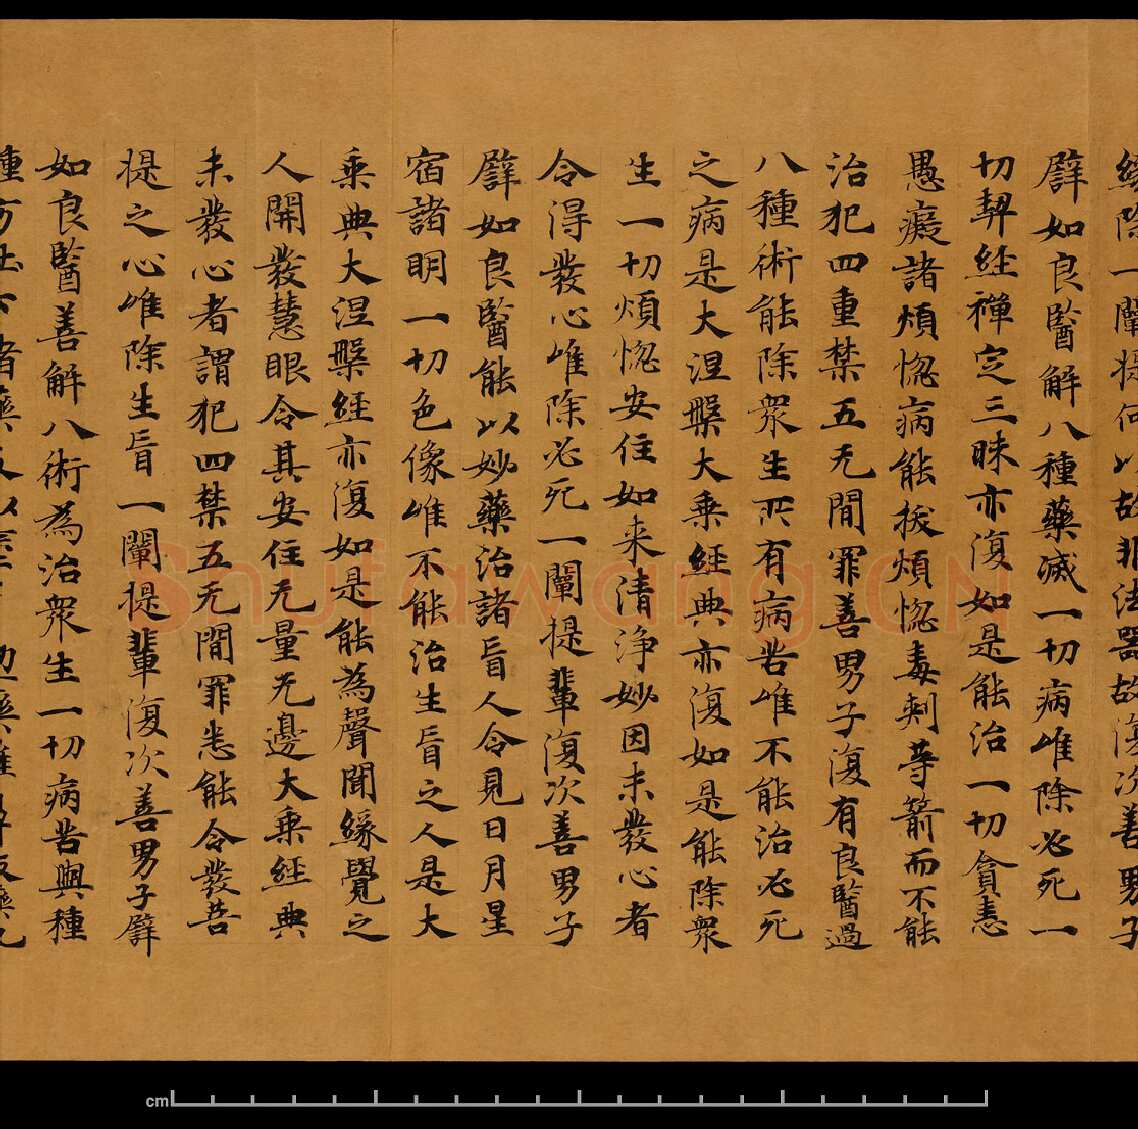 緣除一闡提何以故非法器故復次善男子
譬如良毉解八種藥滅一切病唯除必死一
切契經禪㝎三昧亦復如是能治一切貪恚
愚癡諸煩惚病能拔煩惚毒刺等箭而不能
治犯四重禁五无間罪善男子復有良毉過
八種術能除衆生所有病苦唯不能治必死
之病是大涅槃大乗經典亦復如是能除衆
生一切煩惚安住如来清淨妙因未發心者
令得發心唯除必死一闡提輩復次善男子
譬如良毉能以妙藥治諸盲人令見日月星
宿諸明一切色像唯不能治生盲之人是大
乗典大涅槃經亦復如是能為聲聞緣覺之
人開發慧眼令其安住无量无邊大乗經典
未發心者謂犯四禁五无間罪悉能令發菩
提之心唯除生盲一闡提輩復次善男子譬
如良毉善解八術為治衆生一切病苦與種
種方
shufawang.CN
cm